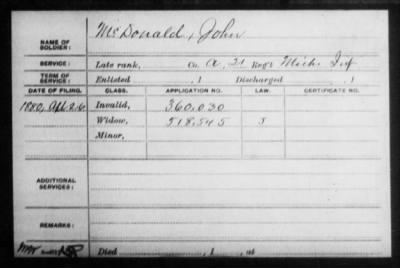 NAME OF SOLDIER: McDonald, John
SERVICE: Late rank, Co. A, 21 Reg't Mich. Inf
TERM OF SERVICE: Enlisted , 1 Discharged , 1
DATE OF FILING. CLASS. APPLICATION NO. LAW. CERTIFICATE NO.
1880, Apl 26 Invalid, 360.030
Widow, 518,545 J
Minor,
ADDITIONAL SERVICES:
REMARKS:
Died , 1 , at